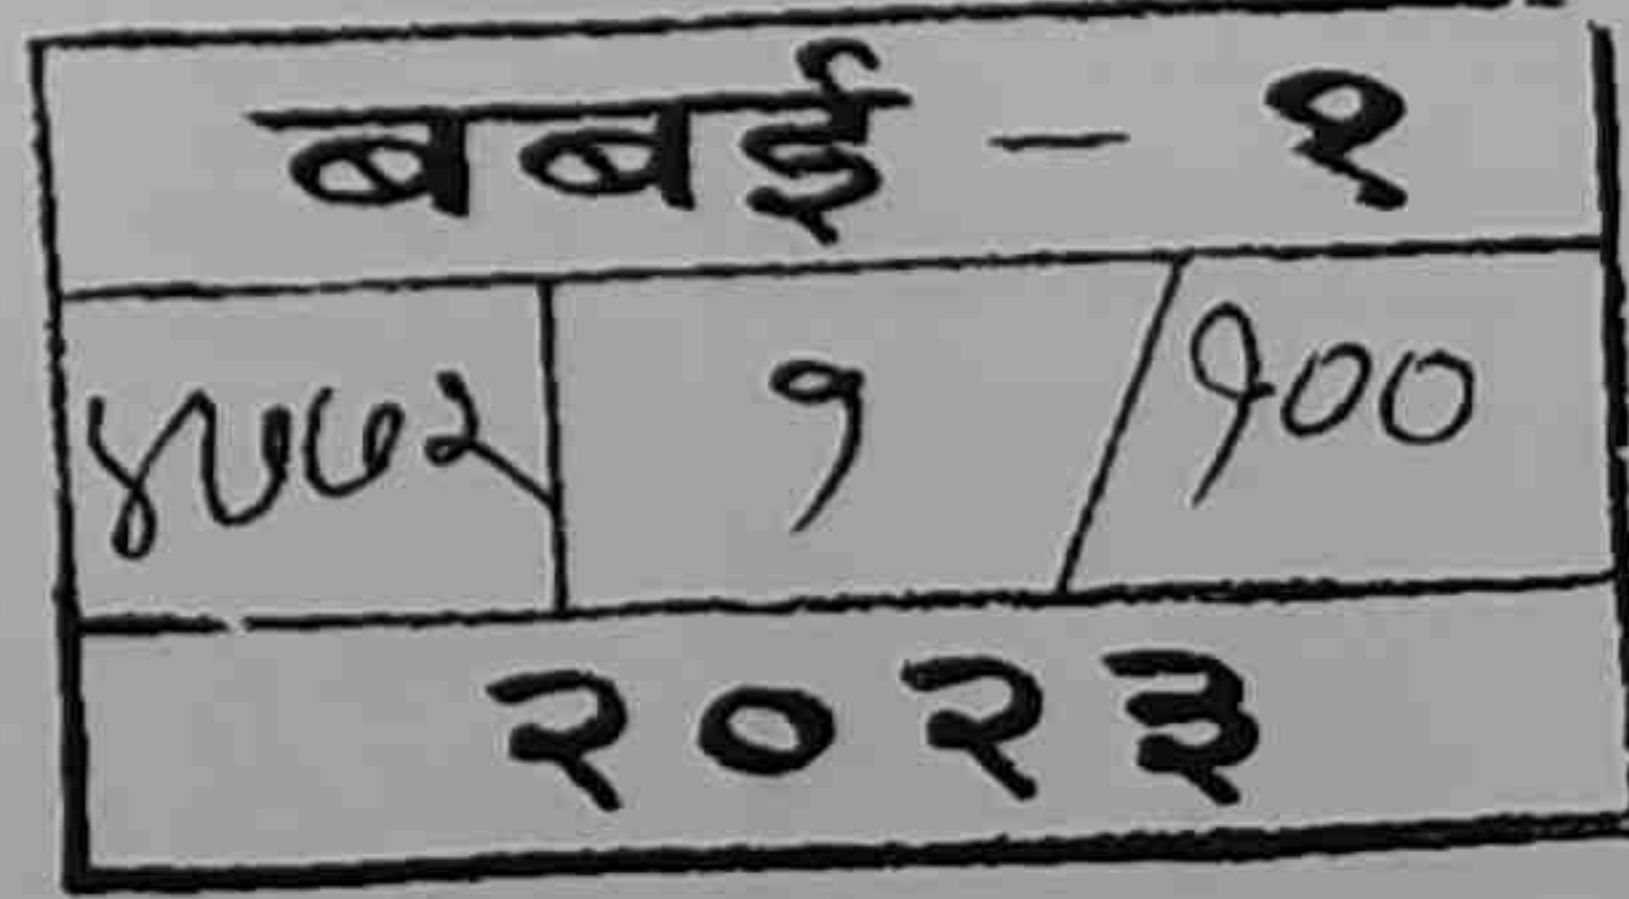 बबई - १
४५७२ १ / १००
२०२३